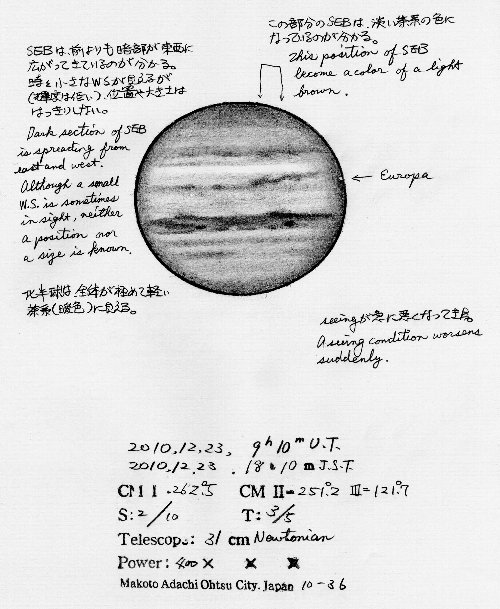 この部分のSEBは、淡い茶系の色に
なっているのが分かる。
This position of SEB
become a color of a light
brown.
SEBは、前よりも暗部が東西に
広がってきているのが分かる。
時々小さなWSが見えるが
(輝度は低い)、位置や大きさは
はっきりしない。
Dark section of SEB
is spreading from
east and west.
Although a small
W.S. is sometimes
in sight, neither
a position nor
a size is known.
← Europa
北半球は、全体が極めて軽い
茶系(暖色)に見える。
seeingが急に悪くなってきた
A seeing condition worsens
suddenly.
2010.12.23, 9h 10m U.T.
2010.12.23. 18h 10m J.S.T.
CM I = 262°.5 CM II = 251°.2 III = 121°.7
S: 2/10 T: 3/5
Telescope: 31 cm Newtonian
Power: 400 × × ×
Makoto Adachi Ohtsu City. Japan 10-36